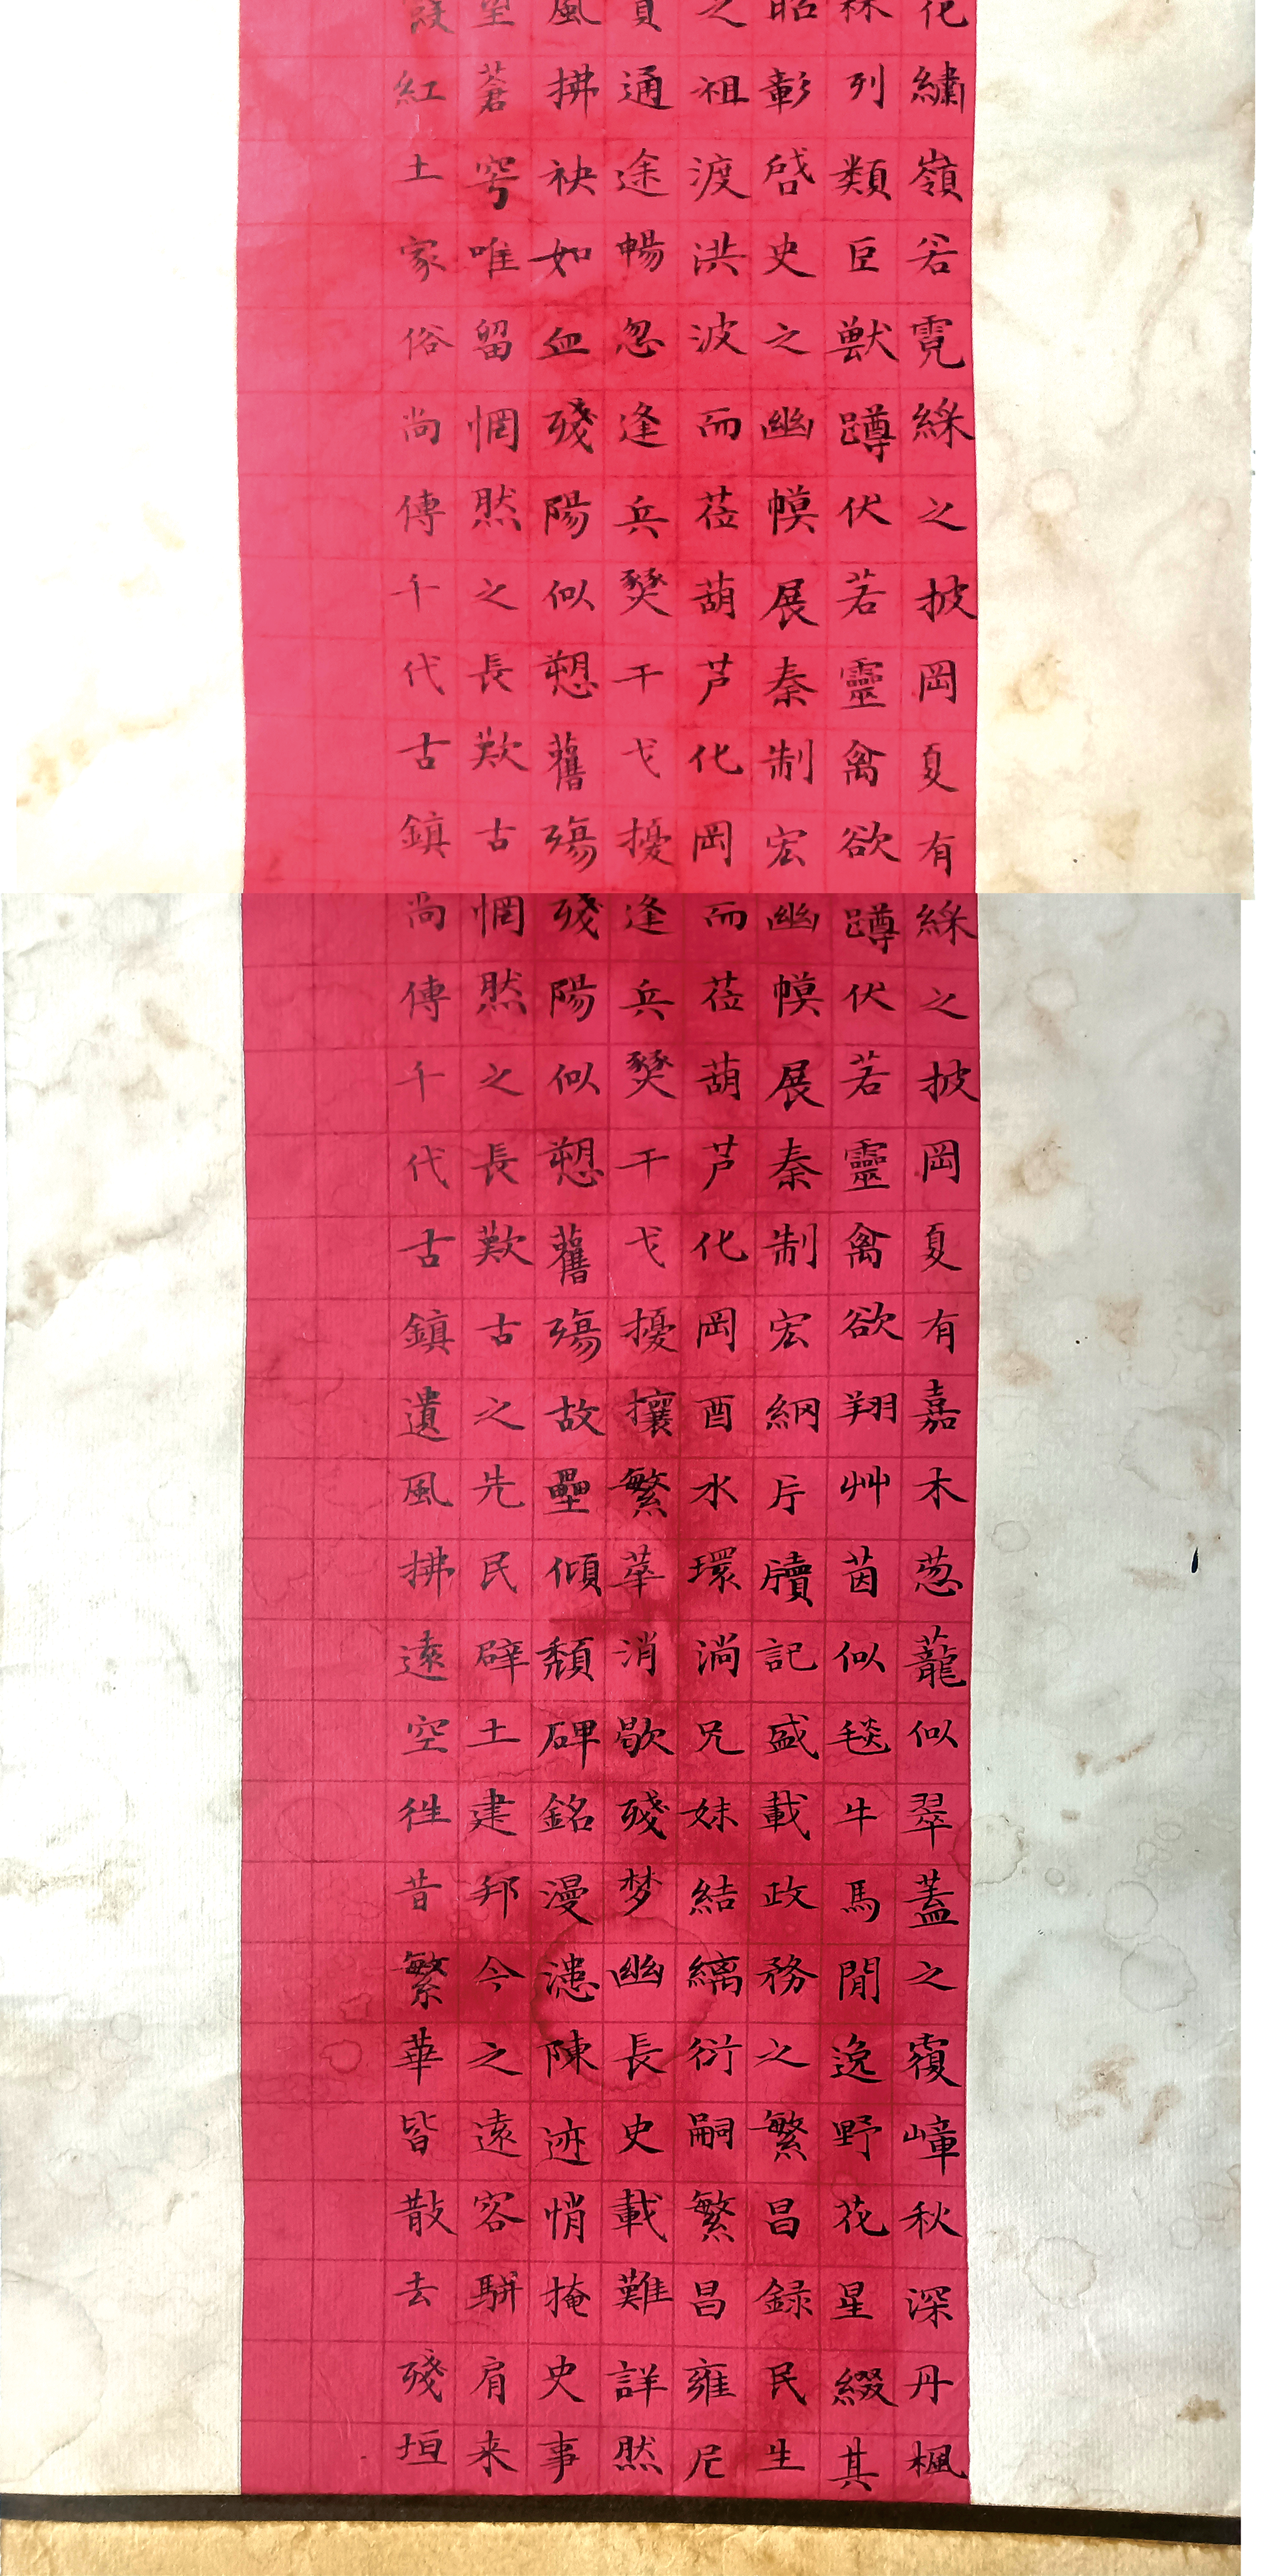 化繡嶺若霓綵之披岡夏有
森列類巨獸蹲伏若靈禽欲
昭彰啓史之幽幙展秦制宏
之祖渡洪波而莅葫芦化岡
貫通途暢忽逢兵燹干戈擾
風拂袂如血殘陽似愬舊殤
蒼穹唯留惘然之長歎古
紅土家俗尚傳千代古鎮
綵之披岡夏有嘉木葱蘢似翠蓋之覆嶂秋深丹楓
蹲伏若靈禽欲翔艸茵似毯牛馬閒逸野花星綴其
幽幙展秦制宏綱片牘記盛載政務之繁昌録民生
而莅葫芦化岡酉水環淌兄妹結縭衍嗣繁昌雍尼
逢兵燹干戈擾攘繁華消歇殘梦幽長史載難詳然
殘陽似愬舊殤故壘傾頹碑銘漫漶陳迹悄掩史事
惘然之長歎古之先民辟土建邦今之遠客駢肩来
尚傳千代古鎮遺風拂遠空徃昔繁華皆散去殘垣